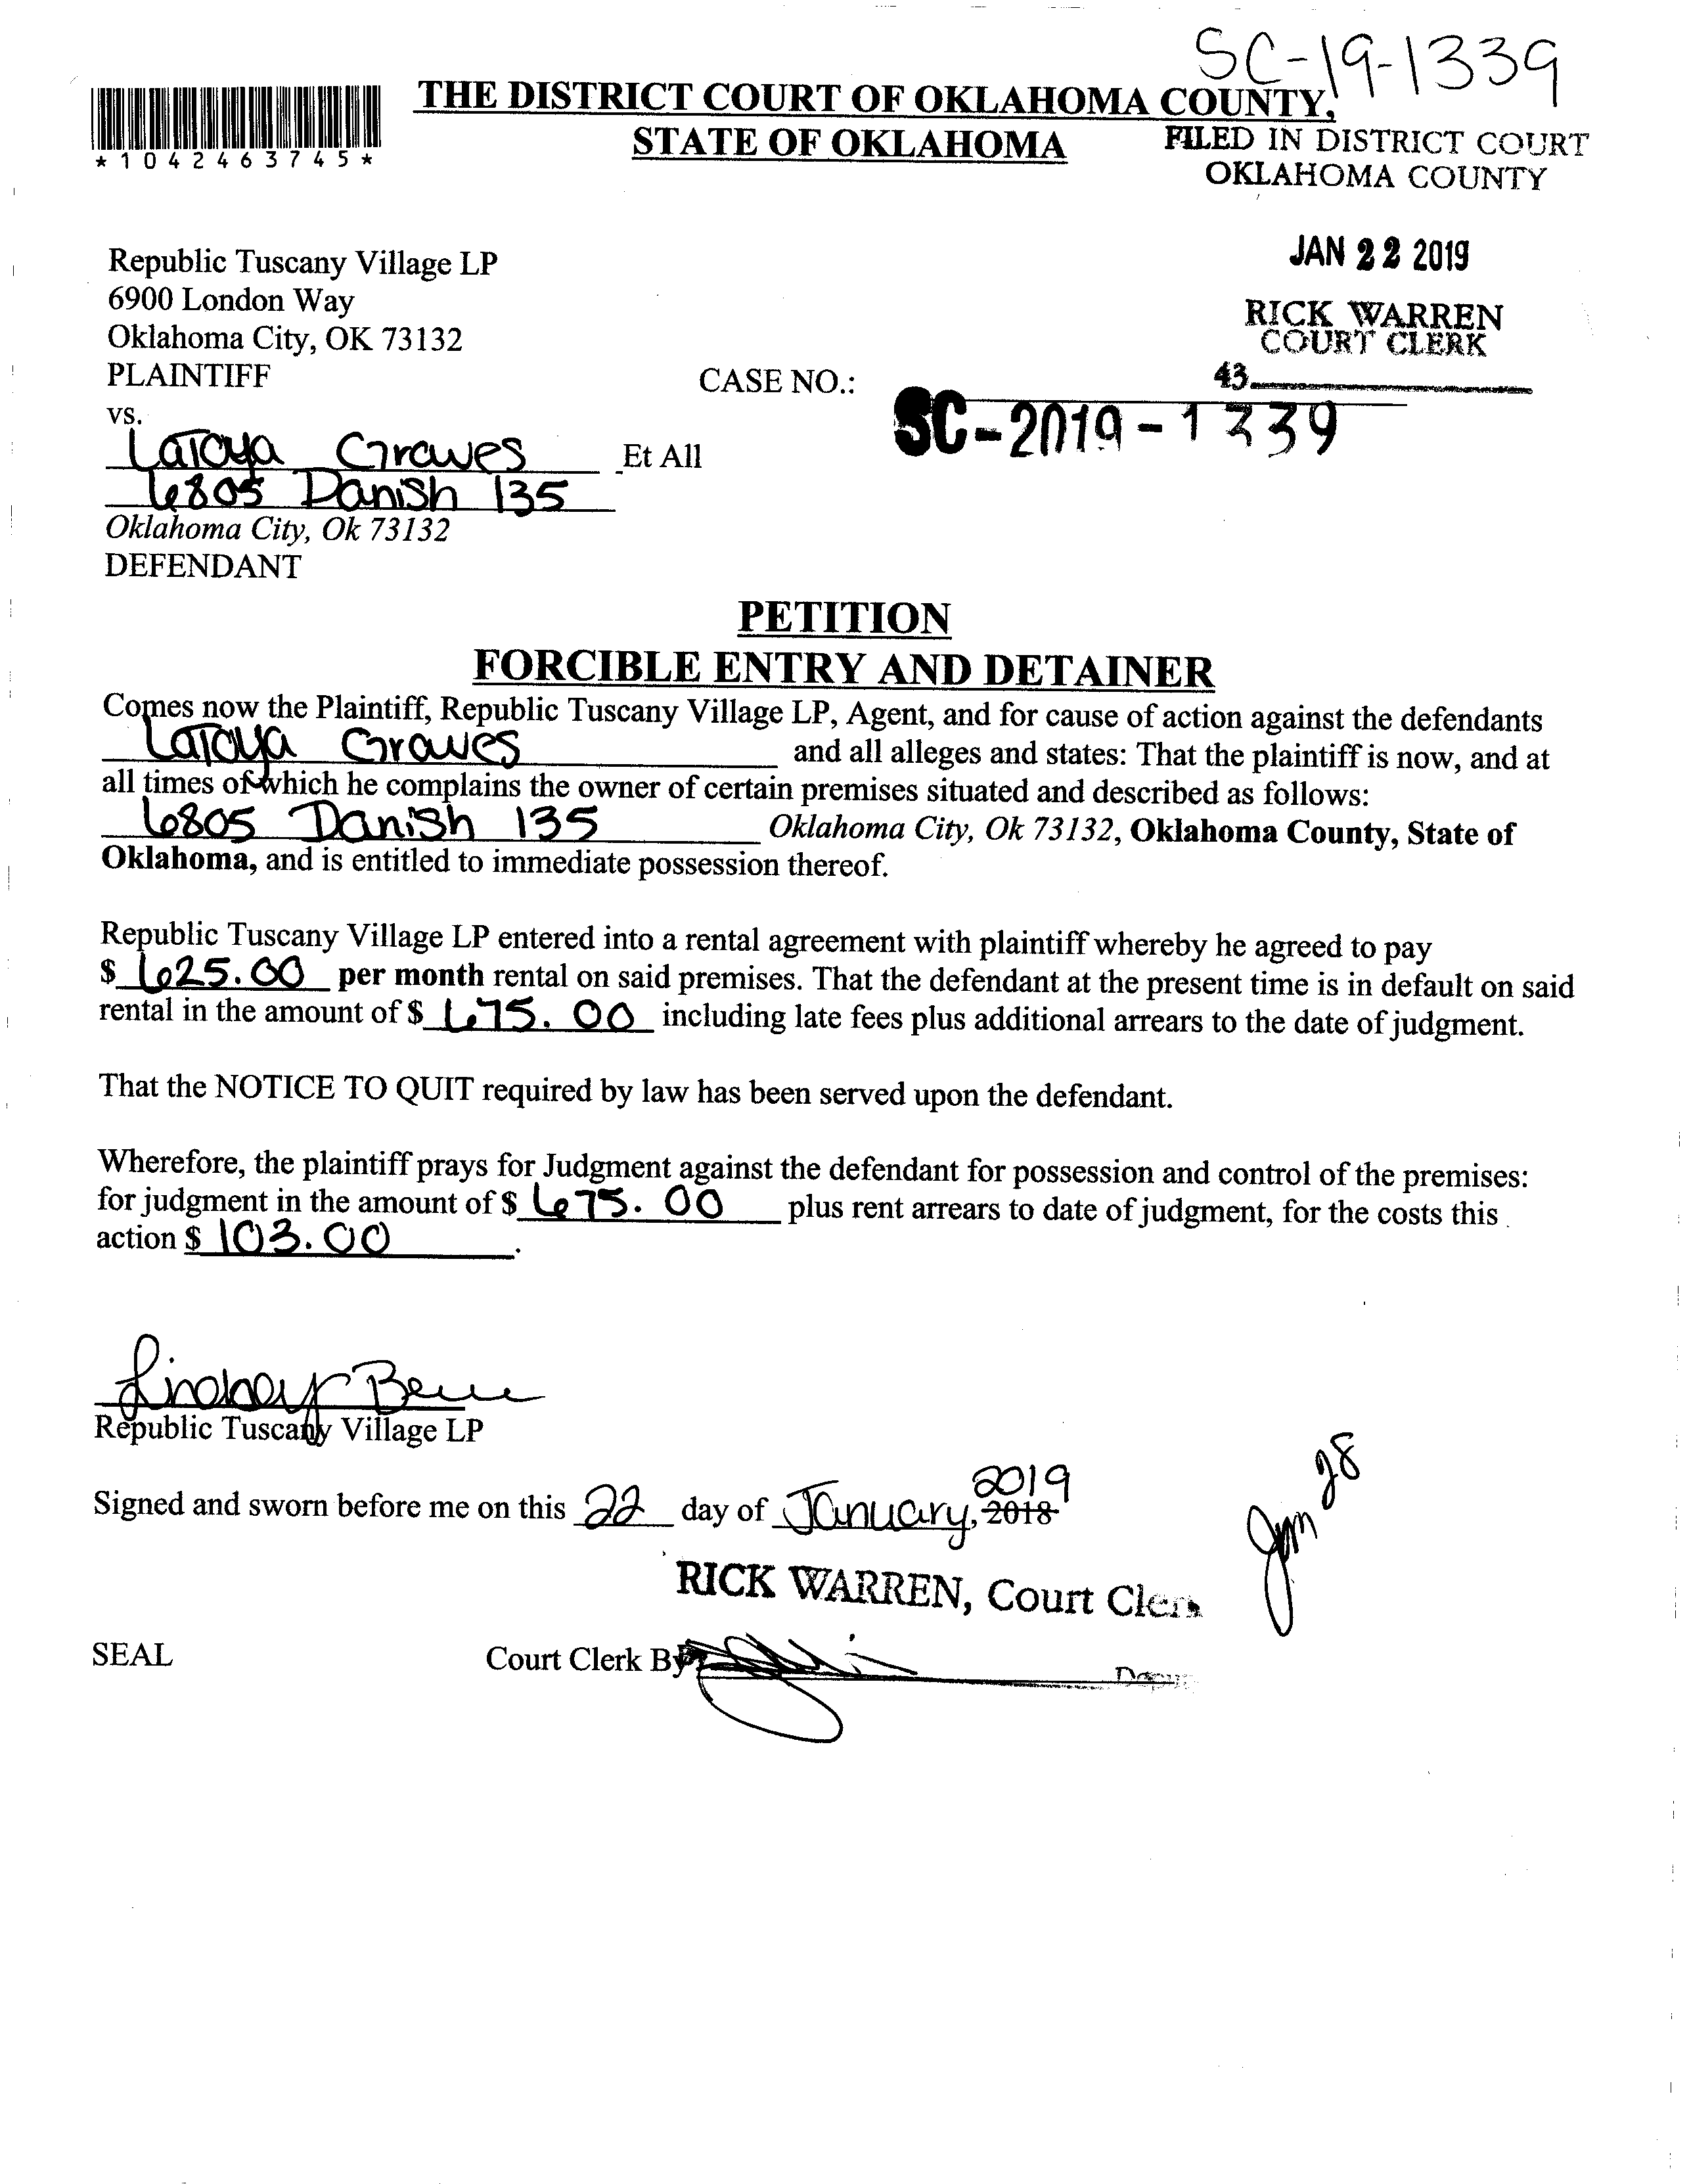 SC-19-1339
THE DISTRICT COURT OF OKLAHOMA COUNTY,
STATE OF OKLAHOMA
*1042463745*
FILED IN DISTRICT COURT
OKLAHOMA COUNTY
JAN 22 2019
RICK WARREN
COURT CLERK
43
Republic Tuscany Village LP
6900 London Way
Oklahoma City, OK 73132
PLAINTIFF
CASE NO.:
SC-2019-1339
vs.
LaToya Graves Et All
6805 Danish 135
Oklahoma City, Ok 73132
DEFENDANT
PETITION
FORCIBLE ENTRY AND DETAINER
Comes now the Plaintiff, Republic Tuscany Village LP, Agent, and for cause of action against the defendants
LaToya Graves and all alleges and states: That the plaintiff is now, and at
all times of which he complains the owner of certain premises situated and described as follows:
6805 Danish 135 Oklahoma City, Ok 73132, Oklahoma County, State of
Oklahoma, and is entitled to immediate possession thereof.
Republic Tuscany Village LP entered into a rental agreement with plaintiff whereby he agreed to pay
$ 625.00 per month rental on said premises. That the defendant at the present time is in default on said
rental in the amount of $ 675.00 including late fees plus additional arrears to the date of judgment.
That the NOTICE TO QUIT required by law has been served upon the defendant.
Wherefore, the plaintiff prays for Judgment against the defendant for possession and control of the premises:
for judgment in the amount of $ 675.00 plus rent arrears to date of judgment, for the costs this
action $ 103.00.
Republic Tuscany Village LP
2019
Signed and sworn before me on this 22 day of January, 2018
RICK WARREN, Court Clerk
SEAL
Court Clerk By